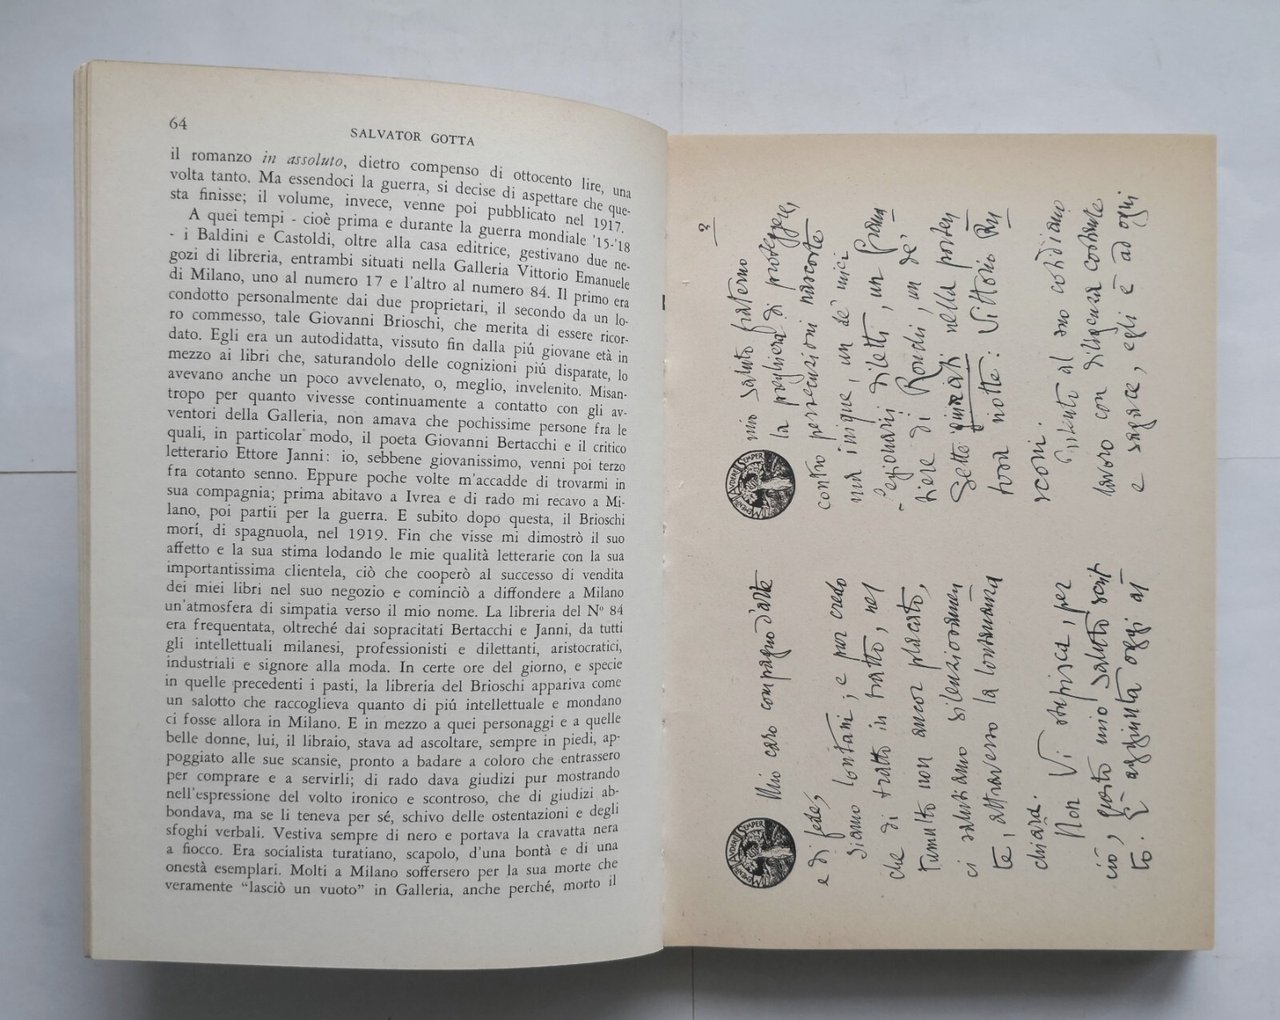 64
SALVATOR GOTTA
il romanzo in assoluto, dietro compenso di ottocento lire, una
volta tanto. Ma essendoci la guerra, si decise di aspettare che que-
sta finisse; il volume, invece, venne poi pubblicato nel 1917.
A quei tempi - cioè prima e durante la guerra mondiale '15-'18
- i Baldini e Castoldi, oltre alla casa editrice, gestivano due ne-
gozi di libreria, entrambi situati nella Galleria Vittorio Emanuele
di Milano, uno al numero 17 e l'altro al numero 84. Il primo era
condotto personalmente dai due proprietari, il secondo da un lo-
ro commesso, tale Giovanni Brioschi, che merita di essere ricor-
dato. Egli era un autodidatta, vissuto fin dalla piú giovane età in
mezzo ai libri che, saturandolo delle cognizioni piú disparate, lo
avevano anche un poco avvelenato, o, meglio, invelenito. Misan-
tropo per quanto vivesse continuamente a contatto con gli av-
ventori della Galleria, non amava che pochissime persone fra le
quali, in particolar modo, il poeta Giovanni Bertacchi e il critico
letterario Ettore Janni: io, sebbene giovanissimo, venni poi terzo
fra cotanto senno. Eppure poche volte m'accadde di trovarmi in
sua compagnia; prima abitavo a Ivrea e di rado mi recavo a Mi-
lano, poi partii per la guerra. E subito dopo questa, il Brioschi
morí, di spagnuola, nel 1919. Fin che visse mi dimostrò il suo
affetto e la sua stima lodando le mie qualità letterarie con la sua
importantissima clientela, ciò che cooperò al successo di vendita
dei miei libri nel suo negozio e cominciò a diffondere a Milano
un'atmosfera di simpatia verso il mio nome. La libreria del N° 84
era frequentata, oltreché dai sopracitati Bertacchi e Janni, da tutti
gli intellettuali milanesi, professionisti e dilettanti, aristocratici,
industriali e signore alla moda. In certe ore del giorno, e specie
in quelle precedenti i pasti, la libreria del Brioschi appariva come
un salotto che raccoglieva quanto di piú intellettuale e mondano
ci fosse allora in Milano. E in mezzo a quei personaggi e a quelle
belle donne, lui, il libraio, stava ad ascoltare, sempre in piedi, ap-
poggiato alle sue scansie, pronto a badare a coloro che entrassero
per comprare e a servirli; di rado dava giudizi pur mostrando
nell'espressione del volto ironico e scontroso, che di giudizi ab-
bondava, ma se li teneva per sé, schivo delle ostentazioni e degli
sfoghi verbali. Vestiva sempre di nero e portava la cravatta nera
a fiocco. Era socialista turatiano, scapolo, d'una bontà e di una
onestà esemplari. Molti a Milano soffersero per la sua morte che
veramente "lasciò un vuoto" in Galleria, anche perché, morto il
Mio caro compagno d'arte
e di fede,
siamo lontani; e pur credo
che di tratto in tratto, nel
tumulto non ancor placato,
ci salutiamo silenziosamen
te, attraverso la lontananza
chiara.
Non Vi stupisca, per
ciò, questo mio saluto scrit
to. È aggiunta oggi al
mio saluto fraterno
la preghiera di proteggere,
contro persecuzioni nascoste
ma inique, un de' miei
legionarii diletti, un Grana
tiere di Ronchi, un de'
Sette giurati nella porten
tosa notte: Vittorio Ru
sconi.
Intento al suo cotidiano
lavoro con diligenza costante
e sagace, egli è ad ogni